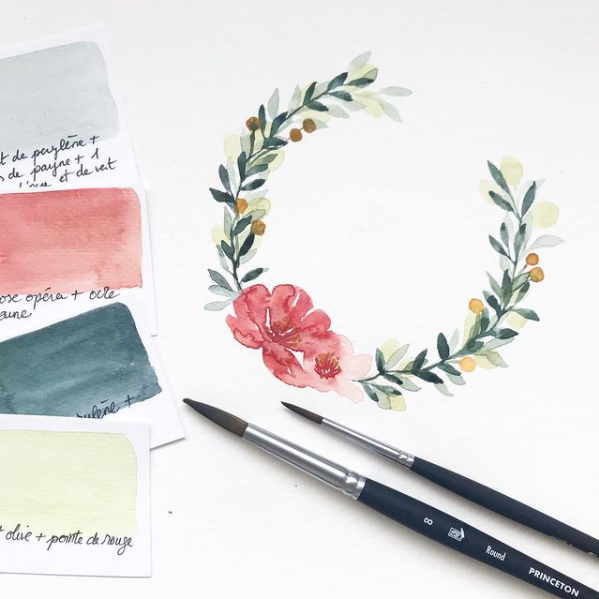 t de perylène +
s de payne + 1
et de vert
ose opéra + ocre
aune
rylène +
t olive + pointe de rouge
8 Round PRINCETON